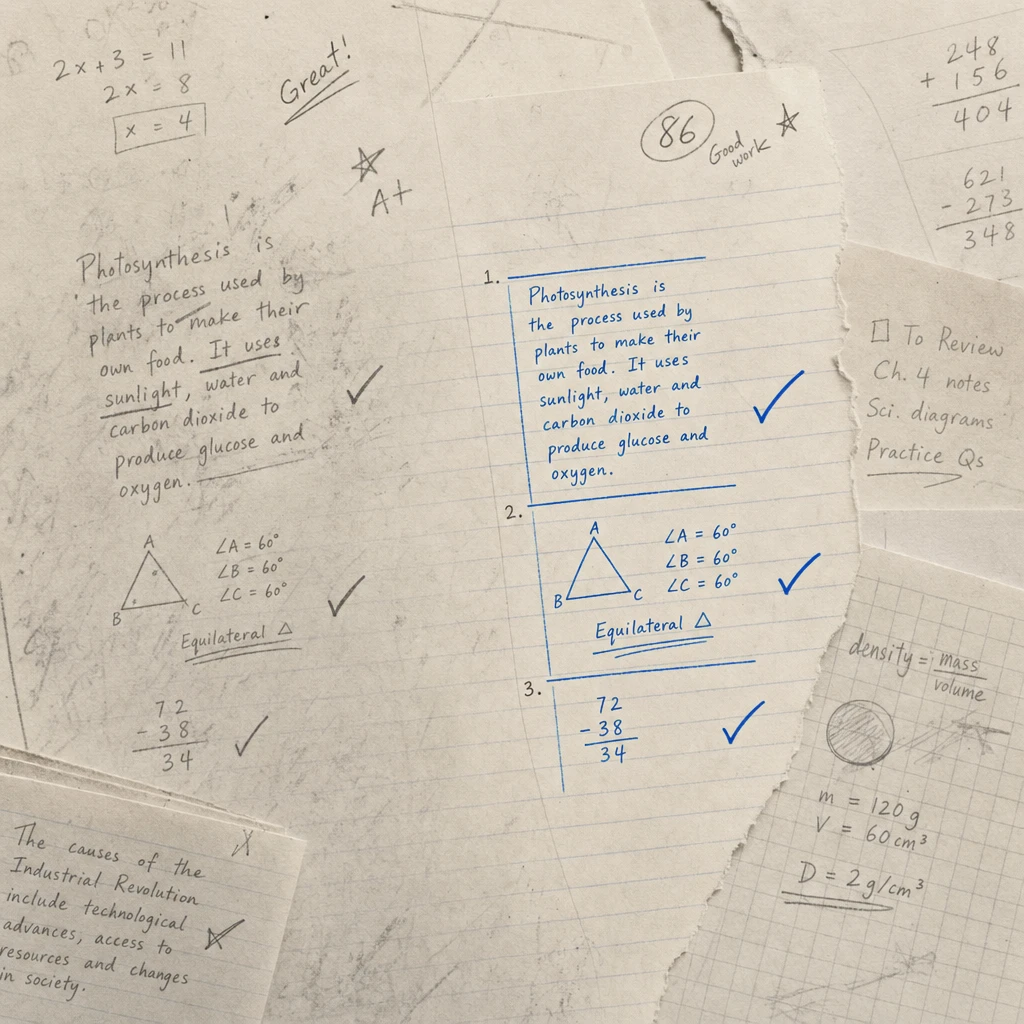 2x+3 = 11
2x = 8
x = 4
Great!
A+
Photosynthesis is
the process used by
plants to make their
own food. It uses
sunlight, water and
carbon dioxide to
produce glucose and
oxygen.
A
B
C
∠A = 60°
∠B = 60°
∠C = 60°
Equilateral △
72
- 38
34
The causes of the
Industrial Revolution
include technological
advances, access to
resources and changes
in society.
86
Good
work
1.
Photosynthesis is
the process used by
plants to make their
own food. It uses
sunlight, water and
carbon dioxide to
produce glucose and
oxygen.
2.
A
B
C
∠A = 60°
∠B = 60°
∠C = 60°
Equilateral △
3.
72
- 38
34
248
+ 156
404
621
- 273
348
☐ To Review
Ch. 4 notes
Sci. diagrams
Practice Qs
density = mass
volume
m = 120 g
V = 60 cm³
D = 2 g/cm³